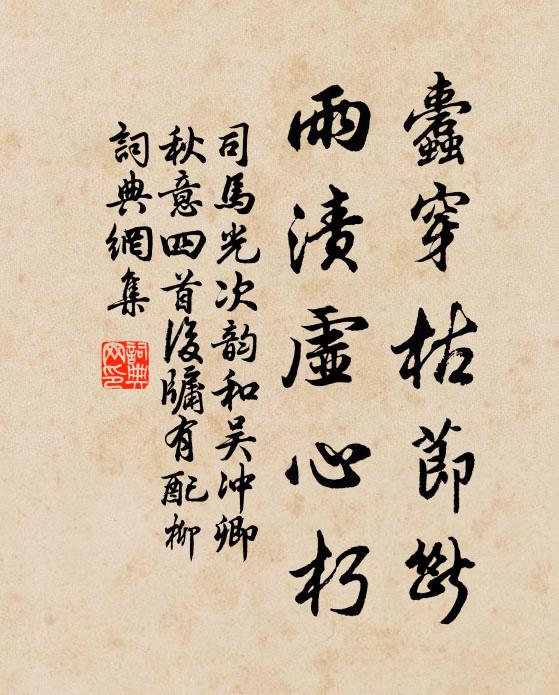 蠹穿枯節斷
雨漬虛心朽
司馬光次韵和吴冲卿
秋意四首後牖有配柳
詞典網集
詞典网印